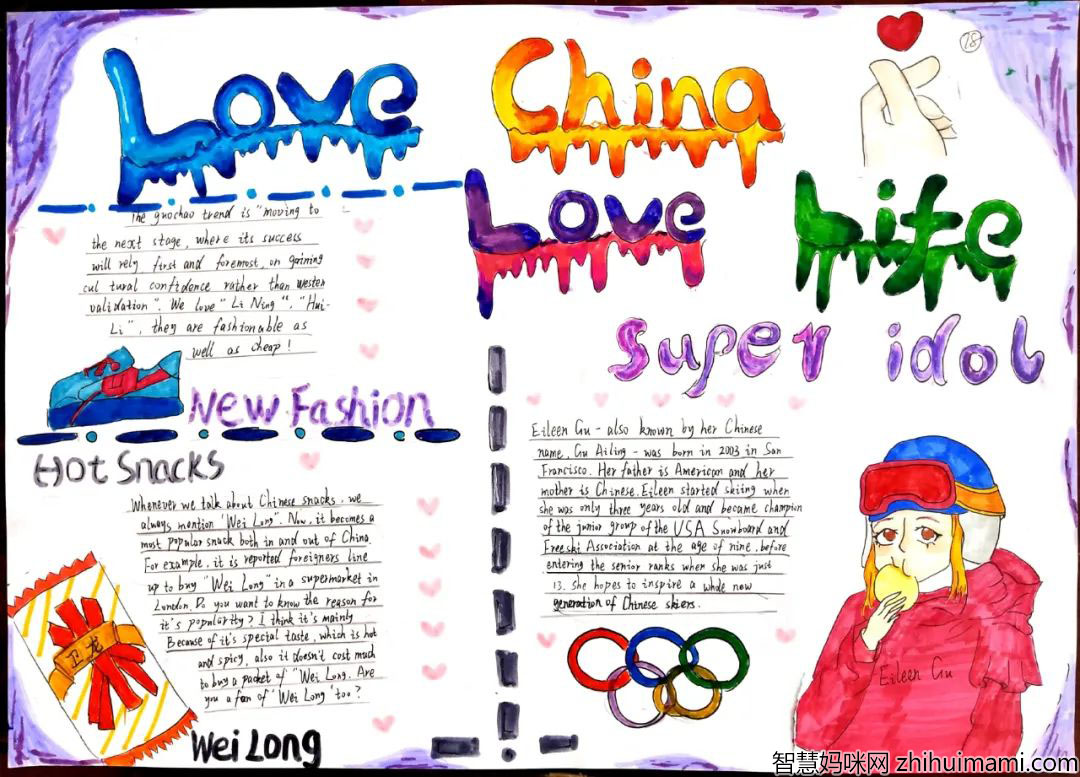 Love China
18
Love Life
Super idol
The guochao trend is "moving to
the next stage, where its success
will rely first and foremost, on gaining
cultural confidence rather than westen
validation". We love "Li Ning", "Hui-
Li", they are fashionable as
well as cheap!
New Fashion
Hot Snacks
Whenever we talk about Chinese snacks, we
always mention 'Wei Long'. Now, it becomes a
most popular snack both in and out of China.
For example, it is reported foreigners line
up to buy "Wei Long" in a supermarket in
London. Do you want to know the reason for
it's popularity? I think it's mainly
Because of it's special taste, which is hot
and spicy, also it doesn't cost much
to buy a packet of "Wei Long. Are
you a fan of 'Wei Long' too?
卫龙
Wei Long
Eileen Gu - also known by her Chinese
name, Gu Ailing - was born in 2003 in San
Francisco. Her father is American and her
mother is Chinese. Eileen started skiing when
she was only three years old and became champion
of the junior group of the USA Snowboard and
Freeski Association at the age of nine, before
entering the senior ranks when she was just
13. She hopes to inspire a whole new
generation of Chinese skiers.
Eileen Gu
智慧妈咪网 zhihuimami.com